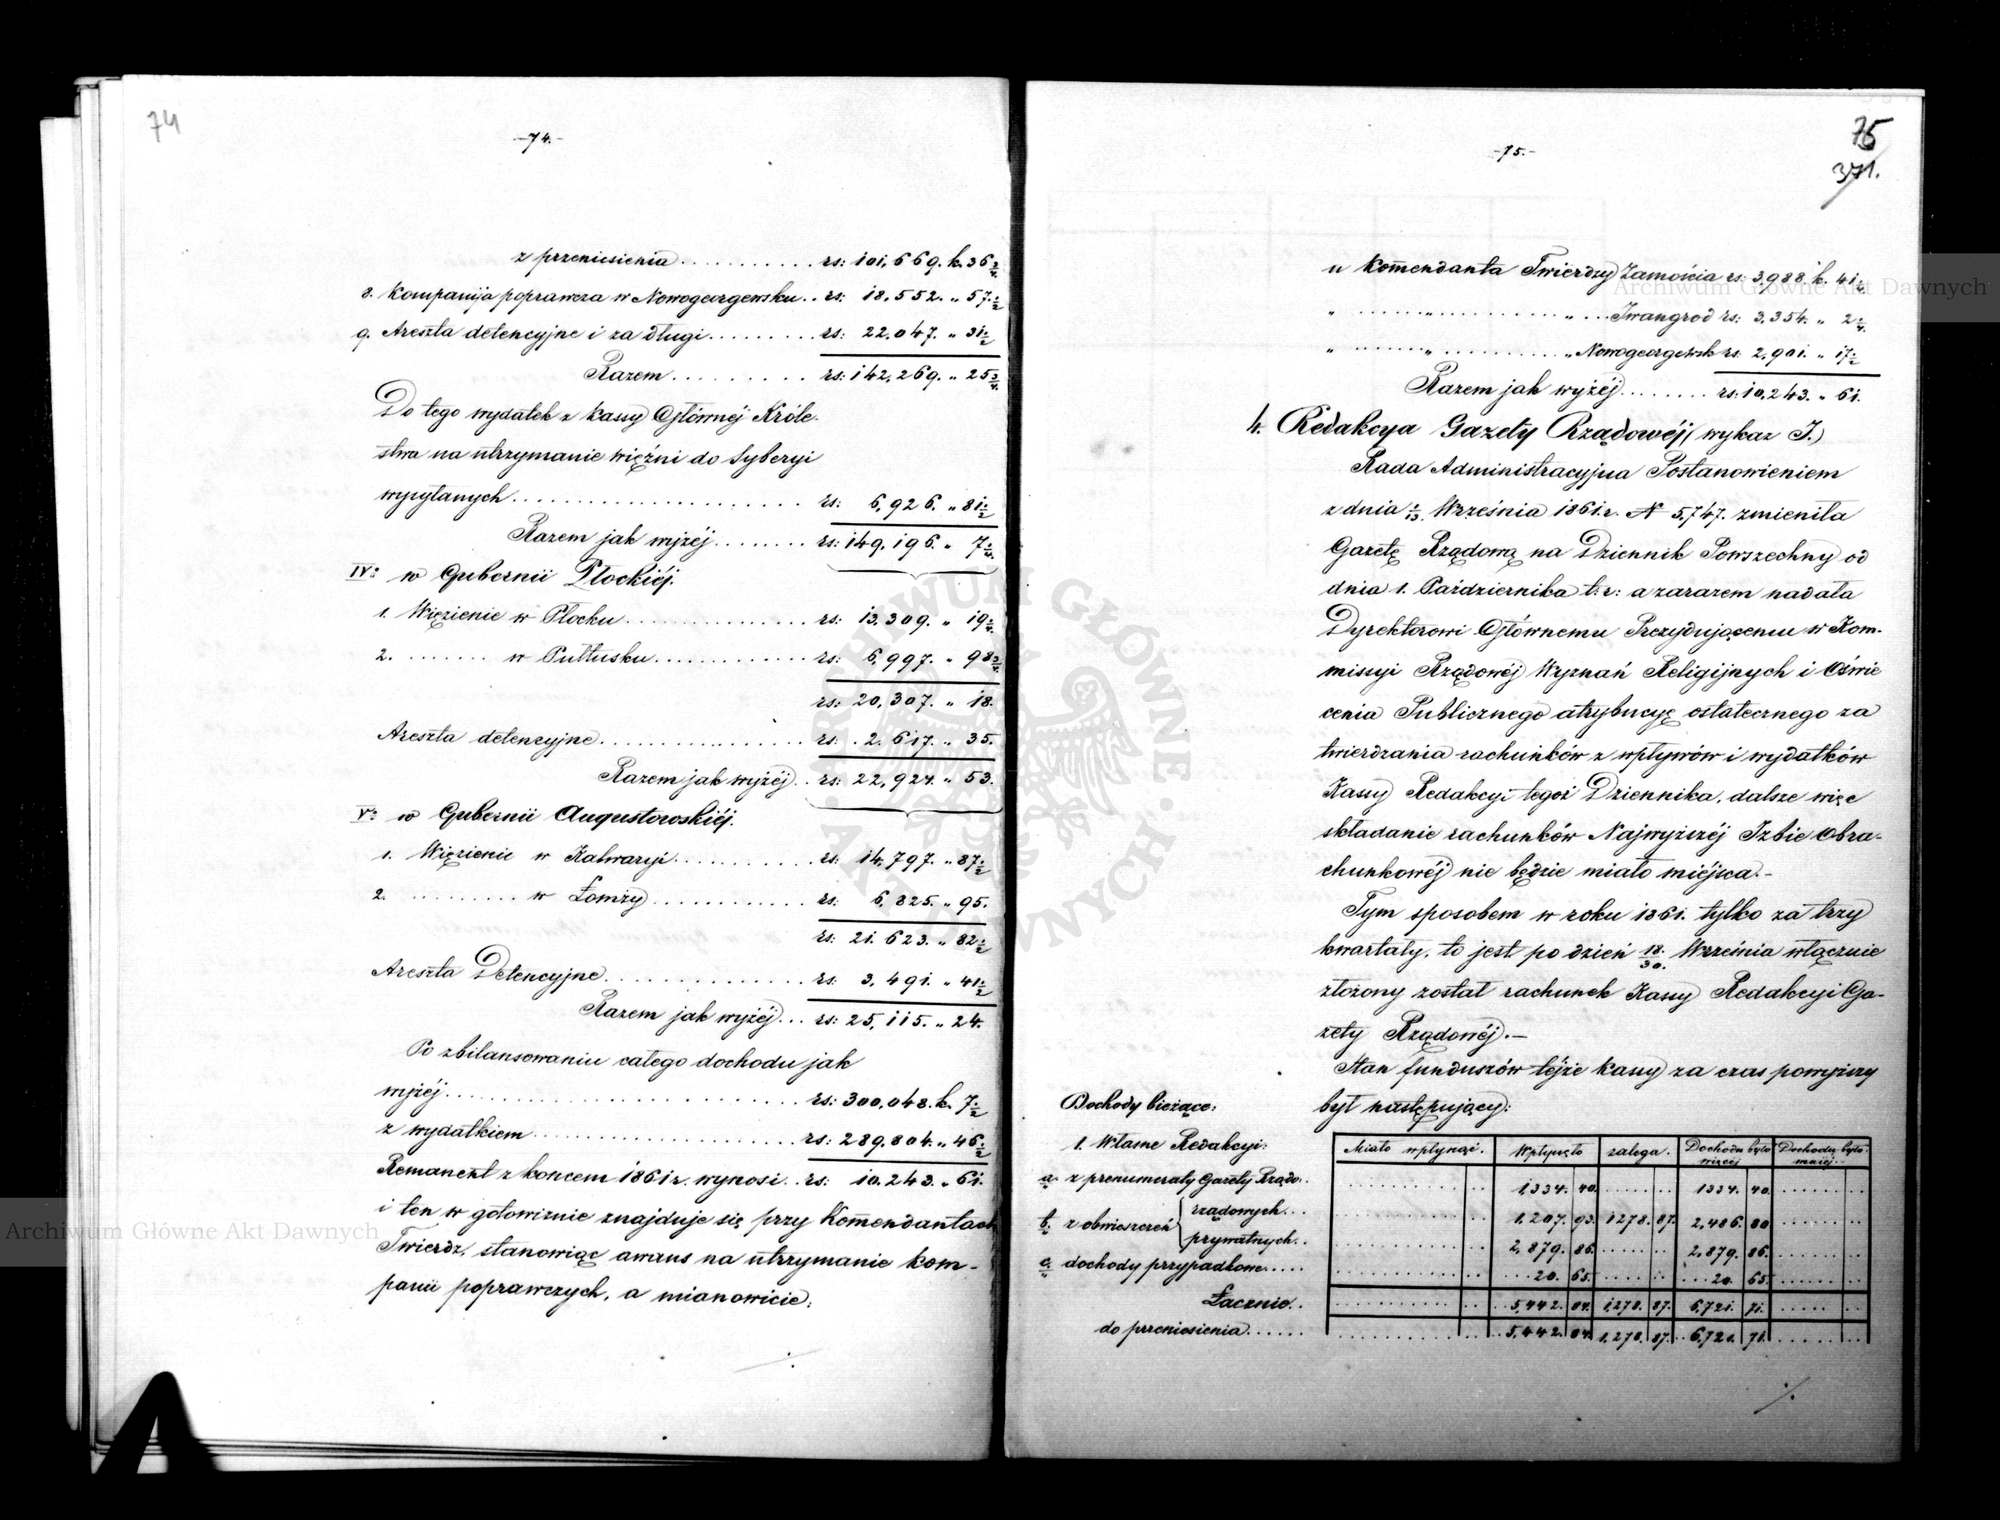 74
-74.-
z przeniesienia . . . . . . . . . . rs: 101,669. k. 36 3/4.
8. Kompanija poprawcza w Nowogeorgewsku . . rs: 18,552. „ 57 1/2
9. Areszta detencyjne i za długi . . . . . . . . . rs: 22,047. „ 31 1/2
Razem . . . . . . . . . rs: 142,269. „ 25 3/4.
Do tego wydatek z Kassy Głównéj Króle-
stwa na utrzymanie więźni do Syberyi
wysyłanych . . . . . . . . . . . . . . . . . . . . rs: 6,926. „ 81 1/2
Razem jak wyżéj . . . . . . . . rs: 149,196. „ 7 1/4.
IVº w Gubernii Płockiéj.
1. Więzienie w Płocku . . . . . . . . . . . . . rs: 13,309. „ 19 1/4.
2. . . . . . . . w Pułtusku . . . . . . . . . . . . rs: 6,997. „ 98 3/4.
rs: 20,307. „ 18.
Areszta detencyjne . . . . . . . . . . . . . . . rs: 2,617. „ 35.
Razem jak wyżéj . rs: 22,924. „ 53.
Vº w Gubernii Augustowskiéj.
1. Więzienie w Kalwaryi . . . . . . . . . . . rs: 14,797. „ 87 1/2
2. . . . . . . . . . . w Łomży . . . . . . . . . . . . rs: 6,825. „ 95.
rs: 21,623. „ 82 1/2
Areszta Detencyjne . . . . . . . . . . . . . . . rs: 3,491. „ 41 1/2
Razem jak wyżéj . . . rs: 25,115. „ 24.
Po zbilansowaniu całego dochodu jak
wyżéj . . . . . . . . . . . . . . . . . . . . . . . rs: 300,048. k. 7 1/2
z wydatkiem . . . . . . . . . . . . . . . . . . rs: 289,804. „ 46 1/2
Remanent z końcem 1861 r. wynosi . . rs: 10,243. „ 61.
i ten w gotowiznie znajduje się przy Komendantach
Twierdz, stanowiąc awans na utrzymanie kom-
panii poprawczych, a mianowicie:
-75.-
75
371.
u Komendanta Twierdzy Zamościa rs: 3,988 k. 41 1/4.
„ . . . . . . . . „ . . . . . . . . . . . . „ . . . Iwangrod rs: 3,354. „ 2 1/4.
„ . . . . . . . . „ . . . . . . . . . . . . „ Nowogeorgewsk rs: 2,901. „ 17 1/2
Razem jak wyżéj . . . . . . . . rs: 10,243. „ 61.
4. Redakcya Gazety Rządowéj (wykaz I.)
Rada Administracyjna Postanowieniem
z dnia 1/13. Września 1861 r. N 5,747. zmieniła
Gazetę Rządową na Dziennik Powszechny od
dnia 1. Października t: r: a zarazem nadała
Dyrektorowi Głównemu Prezydującemu w Kom-
missyi Rządowéj Wyznań Religijnych i Oświe
cenia Publicznego atrybucyę ostatecznego za
twierdzania rachunków z wpływów i wydatków
Kassy Redakcyi tegoż Dziennika, dalsze więc
składanie rachunków Najwyższéj Izbie Obra-
chunkowéj nie będzie miało miéjsca.-
Tym sposobem w roku 1861. tylko za trzy
kwartały, to jest po dzień 18/30. Września włącznie
złożony został rachunek Kassy Redakcyi Ga-
zety Rządowéj.-
Stan funduszów téjże kassy za czas powyższy
był następujący:
Dochody bieżące:
1. Własne Redakcyi:
Miało wpłynąć. Wpłynęło zalega. Dochodu było więcéj Dochodu było mniéj.
a. z prenumeraty Gazety Rządo. . . . . . . 1,334. 40. . . . . . . 1334. 40. . . . . . .
b. z obwieszczeń rządowych . . . . . . . . 1,207. 93. 1278. 87. 2,486. 80 . . . . . .
prywatnych . . . . . . . . 2,879. 86. . . . . . . 2,879. 86. . . . . . .
c. dochody przypadkowe . . . . . . . . . 20. 65. . . . . . . 20. 65. . . . . . .
Łacznie . . . . . . . . 5,442. 84. 1278. 87. 6,721. 71. . . . . . .
do przeniesienia . . . . . . . . 5,442. 84. 1,278. 87. 6,721. 71. . . . . . .
Archiwum Główne Akt Dawnych
Archiwum Główne Akt Dawnych
ARCHIWUM GŁÓWNE AKT DAWNYCH